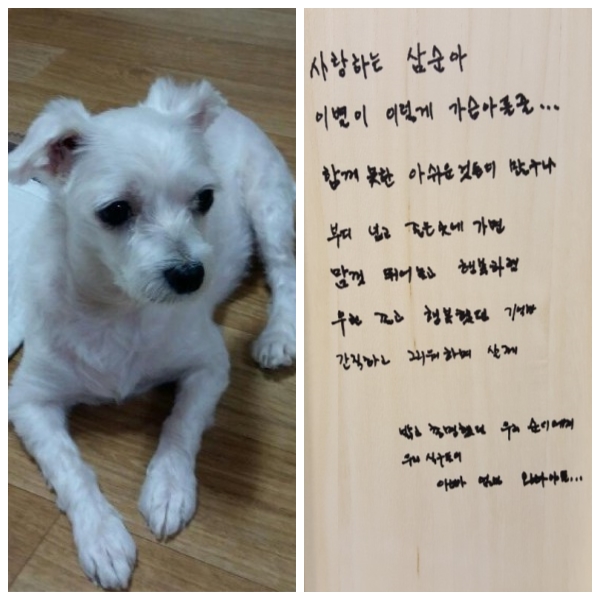 사랑하는 삼순아
이별이 이렇게 가슴아플줄...
함께 못한 아쉬운것들이 많구나
부디 넓고 좋은곳에 가면
맘껏 뛰어놀고 행복하렴
우린 행복했던 기억만
간직하고 그리워하며 살께
밝고 우리 순이에게
우리 식구들이
아빠 엄마